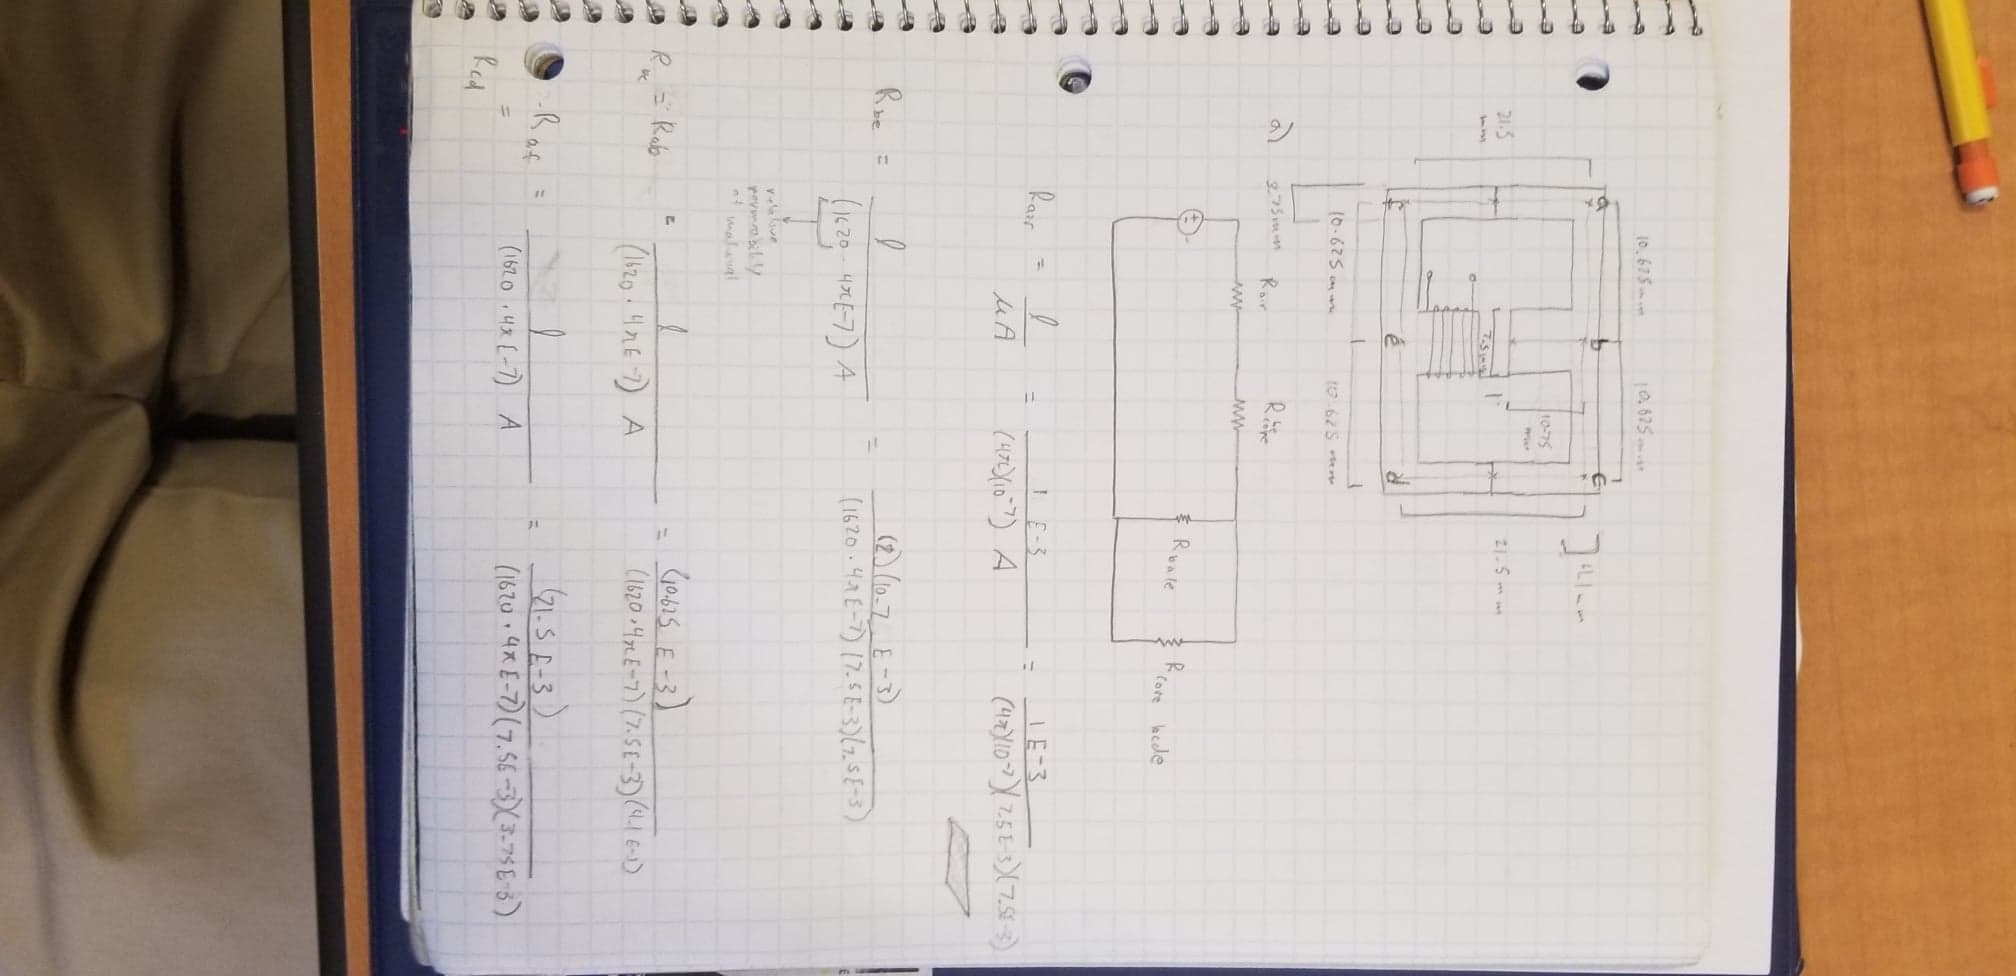 10.625 mm 10.625 mm
a b c
4.1 mm
10.75 mm
21.5 mm
7.5 mm
21.5 mm
f e d
10.625 mm 10.625 mm
a) 3.75mm
Rair Rcore be
Rbafe Rcore bcde
Rair = l / μA = 1 E-3 / (4π)(10^-7) A = 1 E-3 / (4π)(10^-7)(7.5E-3)(7.5E-3)
Rbe = l / (1620 · 4πE-7) A = (2)(10.7 E-3) / (1620 · 4πE-7)(7.5E-3)(7.5E-3)
relative
permeability
of material
Rbc = Rab = l / (1620 · 4πE-7) A = (10.625 E-3) / (1620 · 4πE-7)(7.5E-3)(4.1E-3)
Raf = l / (1620 · 4πE-7) A = (21.5 E-3) / (1620 · 4πE-7)(7.5E-3)(3.75E-3)
=
Rcd